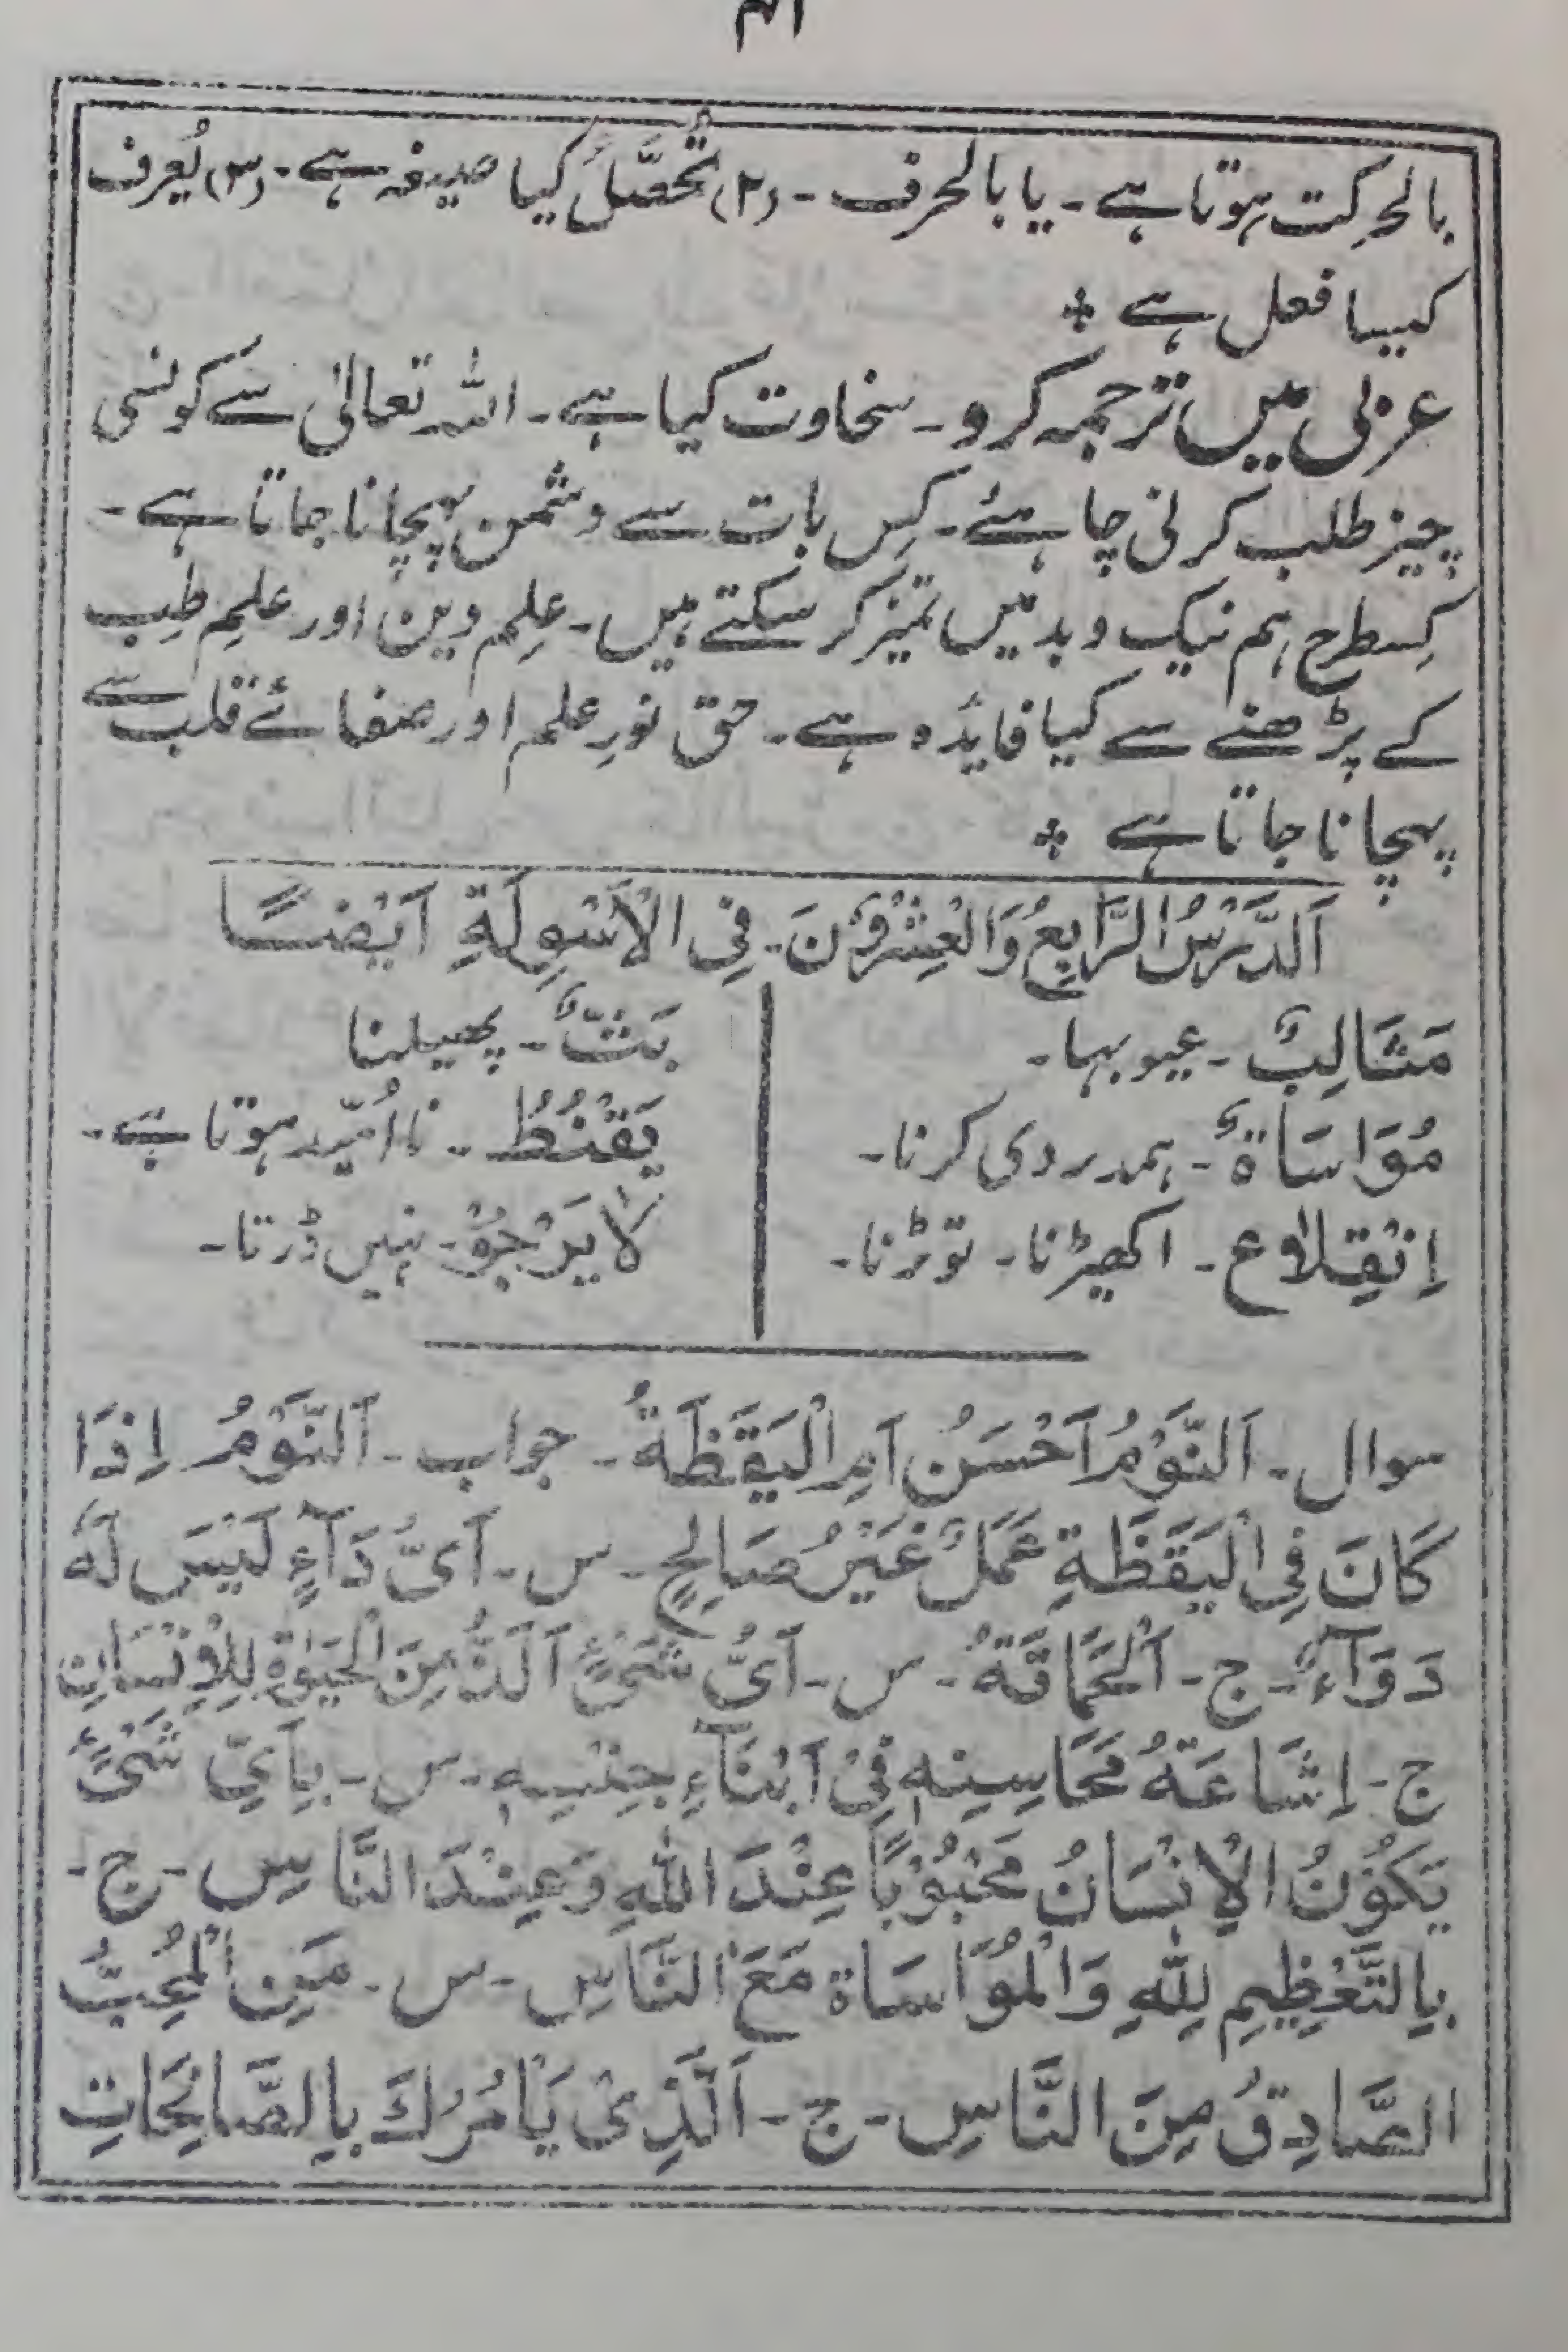 ۴۱
بالحرکت ہوتا ہے۔ یا بالحرف۔ (۲) تُحَصَّلُ کیا صیغہ ہے۔ (۳) یُعرف
کیسا فعل ہے
عربی میں ترجمہ کرو۔ سخاوت کیا ہے۔ اللہ تعالیٰ سے کونسی
چیز طلب کرنی چاہئے۔ کِس بات سے دشمن پہچانا جاتا ہے۔
کِسطرح ہم نیک و بد میں تمیز کر سکتے ہیں۔ عِلمِ دین اور علمِ طِب
کے پڑھنے سے کیا فایٔدہ ہے۔ حق نورِ علم اور صفائے قلب سے
پہچانا جاتا ہے
اَلدَّرْسُ الرَّابِعُ وَالْعِشْرُوْنَ۔ فِی الْاَسْوِلَةِ اَیْضًا
مَثَالِبُ۔ عیوبہا۔
بَثٌّ۔ پھیلنا
مُوَاسَاةٌ۔ ہمدردی کرنا۔
یَقْنُطُ۔ نا اُمّید ہوتا ہے۔
اِنْقِلَاع۔ اکھیڑنا۔ توڑنا۔
لَا یَرْجُوْ۔ نہیں ڈرتا۔
سوال۔ اَلنَّوْمُ اَحْسَنُ اَمِ الْیَقَظَةُ۔ جواب۔ اَلنَّوْمُ اِذَا
کَانَ فِی الْیَقَظَةِ عَمَلٌ غَیْرُ صَالِحٍ۔ س۔ اَیُّ دَآءٍ لَیْسَ لَهٗ
دَوَآءٌ۔ ج۔ اَلْحَمَاقَةُ۔ س۔ اَیُّ شَیْءٍ اَلَذُّ مِنَ الْحَیٰوةِ لِلْاِنْسَانِ
ج۔ اِشَاعَةُ مَحَاسِنِهٖ فِیْ اَبْنَآءِ جِنْسِهٖ۔ س۔ بِاَیِّ شَیْءٍ
یَکُوْنُ الْاِنْسَانُ مَحْبُوْبًا عِنْدَ اللّٰهِ وَعِنْدَ النَّاسِ۔ ج۔
بِالتَّعْظِیْمِ لِلّٰهِ وَالْمُوَاسَاة مَعَ النَّاسِ۔ س۔ مَنِ الْمُحِبُّ
الصَّادِقُ مِنَ النَّاسِ۔ ج۔ اَلَّذِیْ یَأْمُرُكَ بِالصَّالِحَاتِ